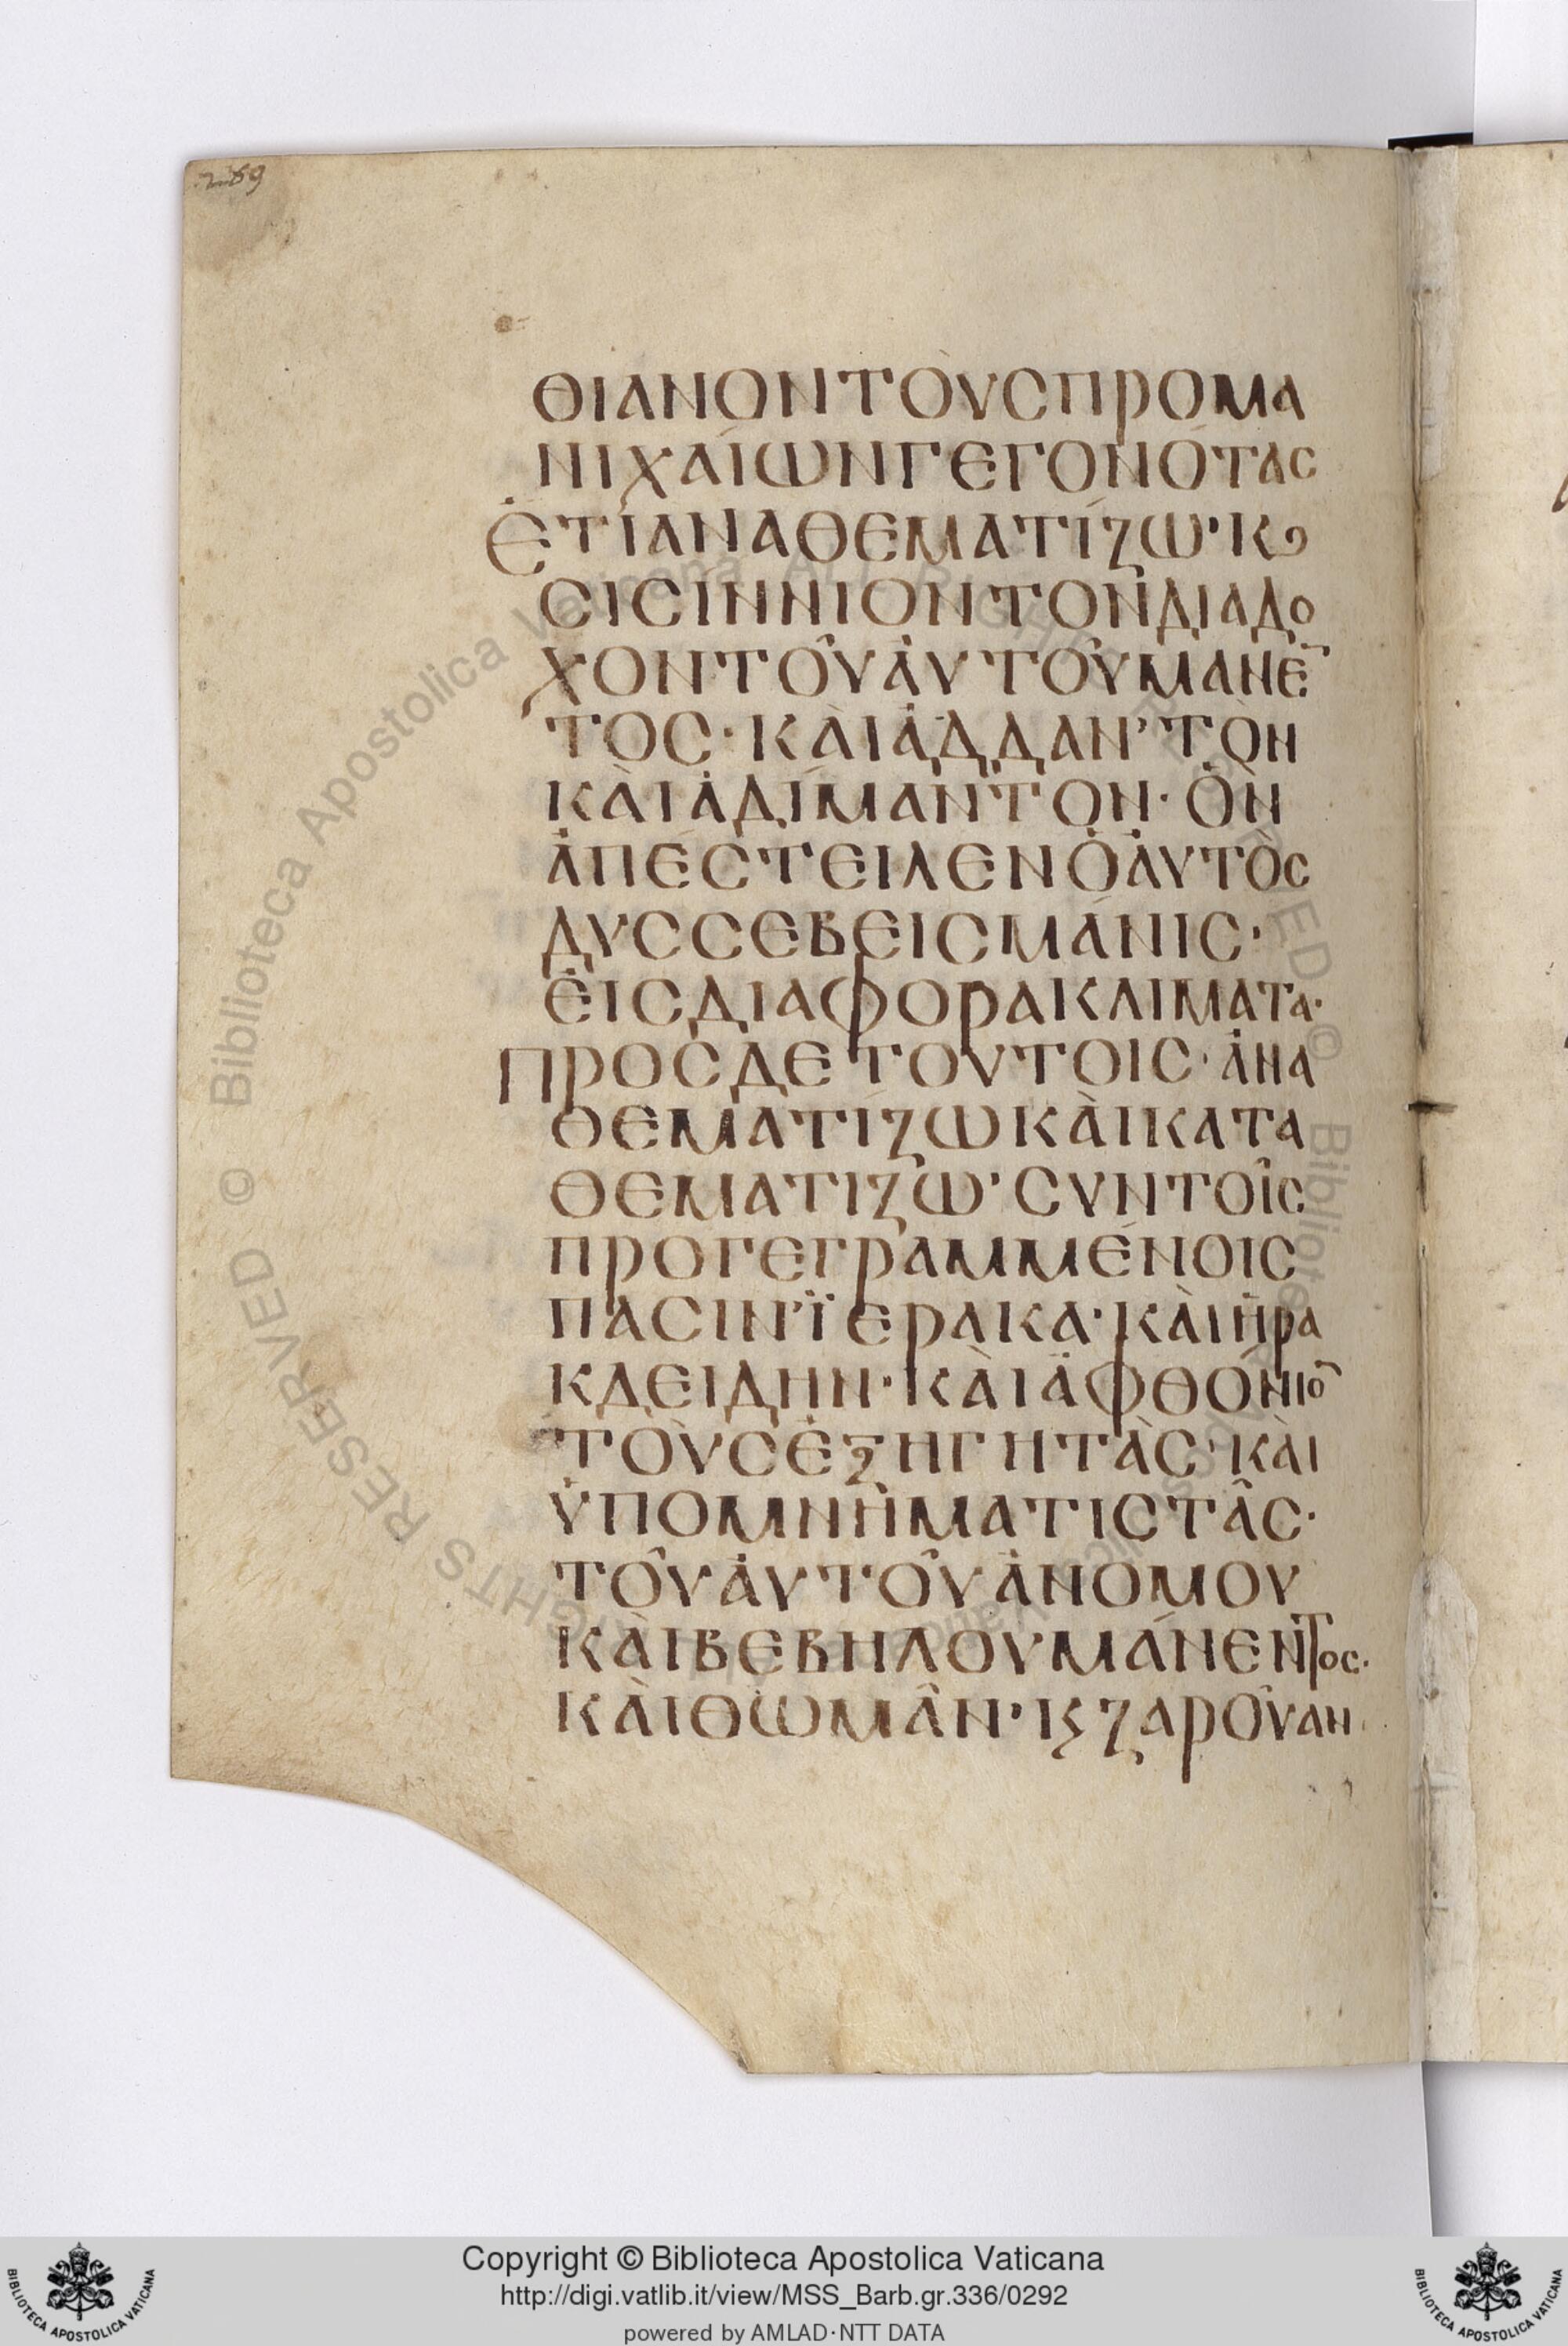 269
ΘΙΑΝΟΝΤΟῪϹΠΡΟΜΑ
ΝΙΧΑΊΩΝΓΕΓΟΝΌΤΑϹ
ἘΤΊΑΝΑΘΕΜΑΤΊΖΩ·Κϧ
ϹΙϹΙΝΝΙΟΝΤΟΝΔΙΑΔΟ
ΧΟΝΤΟῦἀΥΤΟῦΜΑΝΕ̄
ΤΟϹ·ΚᾺΙἈΔΔΑΝ’ΤῸΝ
ΚᾺΙἈΔΊΜΑΝΤΟΝ·ὋΝ
ἈΠΈϹΤΕΙΛΕΝὉἈΥΤῸϹ
ΔΥϹϹΕΒΕΙϹΜΆΝΙϹ·
ἘΙϹΔΙΑΦΟΡΑΚΛΙΜΑΤΑ·
ΠΡΟϹΔΕΤΟΥΤΟΙϹ·ἈΝΑ
ΘΕΜΑΤΊΖΩΚᾺΙΚΑΤΑ
ΘΕΜΑΤΙΖΩ·ϹΥΝΤΟῖϹ
ΠΡΟΓΕΓΡΑΜΜΈΝΟΙϹ
ΠΑϹΙΝ·ΪΕΡΑΚΑ·ΚᾺΙἩΡΑ
ΚΛΕΙΔΗΝ·ΚᾺΙἈΦΘΌΝΙΟ̄
ΤΟῪϹἘΞΗΓΗΤᾺϹ·ΚᾺΙ
ὙΠΟΜΝΗΜΑΤΙϹΤᾶϹ·
ΤΟῦἈΥΤΟῦἈΝΟΜΟΥ
ΚᾺΙΒΕΒΗΛΟΥΜΆΝΕΝΤΟϹ·
ΚᾺΙΘΩΜᾶΝ·ΚϚΖΑΡΟΎΑΝ·
Copyright © Biblioteca Apostolica Vaticana
http://digi.vatlib.it/view/MSS_Barb.gr.336/0292
powered by AMLAD·NTT DATA
BIBLIOTECA APOSTOLICA VATICANA
BIBLIOTECA APOSTOLICA VATICANA